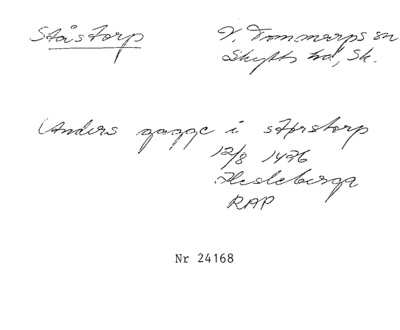 Ståstorp
V. Tommarps sn
Skytts hd, Sk.
Anders gagge i støstorp
12/8 1476
Heleberga
RAP
Nr 24168